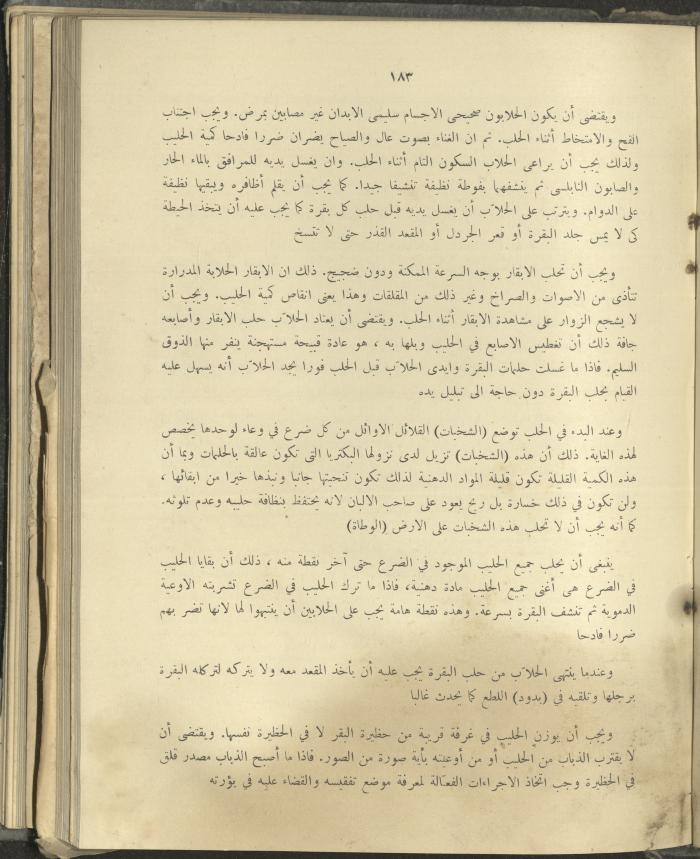 ١٨٣
ويقتضى أن يكون الحلابون صحيحى الاجسام سليمى الابدان غير مصابين بمرض. ويجب اجتناب
القح والامتخاط أثناء الحلب. ثم ان الغناء بصوت عال والصياح يضران ضررا فادحا كمية الحليب
ولذلك يجب أن يراعى الحلاب السكون التام أثناء الحلب. وان يغسل يديه للمرافق بالماء الحار
والصابون النابلسى ثم ينشفهما بفوطة نظيفة تنشيفا جيدا. كما يجب أن يقلم أظافره ويبقيها نظيفة
على الدوام. ويترتب على الحلاّب أن يغسل يديه قبل حلب كل بقرة كما يجب عليه أن يتخذ الحيطة
كى لا يمس جلد البقرة أو قعر الجردل أو المقعد القذر حتى لا تتسخ
ويجب أن تحلب الابقار بوجه السرعة الممكنة ودون ضجيج. ذلك ان الابقار الحلابة المدرارة
تتأذى من الاصوات والصراخ وغير ذلك من المقلقات وهذا يعنى انقاص كمية الحليب. ويجب أن
لا يشجع الزوار على مشاهدة الابقار أثناء الحلب. ويقتضى أن يعتاد الحلاّب حلب الابقار وأصابعه
جافة ذلك أن تغطيس الاصابع في الحليب وبلها به ، هو عادة قبيحة مستهجنة ينفر منها الذوق
السليم. فاذا ما غسلت حلمات البقرة وايدى الحلاّب قبل الحلب فورا يجد الحلاّب أنه يسهل عليه
القيام بحلب البقرة دون حاجة الى تبليل يده
وعند البدء في الحلب توضع (الشخبات) القلائل الاوائل من كل ضرع في وعاء لوحدها يخصص
لهذه الغاية. ذلك أن هذه (الشخبات) تزيل لدى نزولها البكتريا التى تكون عالقة بالحلمات وبما أن
هذه الكمية القليلة تكون قليلة المواد الدهنية لذلك تكون تنحيتها جانبا ونبذها خيرا من ابقائها ،
ولن تكون في ذلك خسارة بل ربح يعود على صاحب الالبان لانه يحتفظ بنظافة حليبه وعدم تلوثه.
كما أنه يجب أن لا تحلب هذه الشخبات على الارض (الوطاة)
ينبغى أن يحلب جميع الحليب الموجود في الضرع حتى آخر نقطة منه ، ذلك أن بقايا الحليب
في الضرع هى أغنى جميع الحليب مادة دهنية، فاذا ما ترك الحليب في الضرع تشربته الاوعية
الدموية ثم تنشف البقرة بسرعة. وهذه نقطة هامة يجب على الحلابين أن ينتبهوا لها لانها تضر بهم
ضررا فادحا
وعندما ينتهى الحلاّب من حلب البقرة يجب عليه أن يأخذ المقعد معه ولا يتركه لتركله البقرة
برجلها وتلقبه في (بدود) اللطع كما يحدث غالبا
ويجب أن يوزن الحليب في غرفة قريبة من حظيرة البقر لا في الحظيرة نفسها. ويقتضى أن
لا يقترب الذباب من الحليب أو من أوعيته بأية صورة من الصور. فاذا ما أصبح الذباب مصدر قلق
في الحظيرة وجب اتخاذ الاجراءات الفعّالة لمعرفة موضع تفقيسه والقضاء عليه في بؤرته